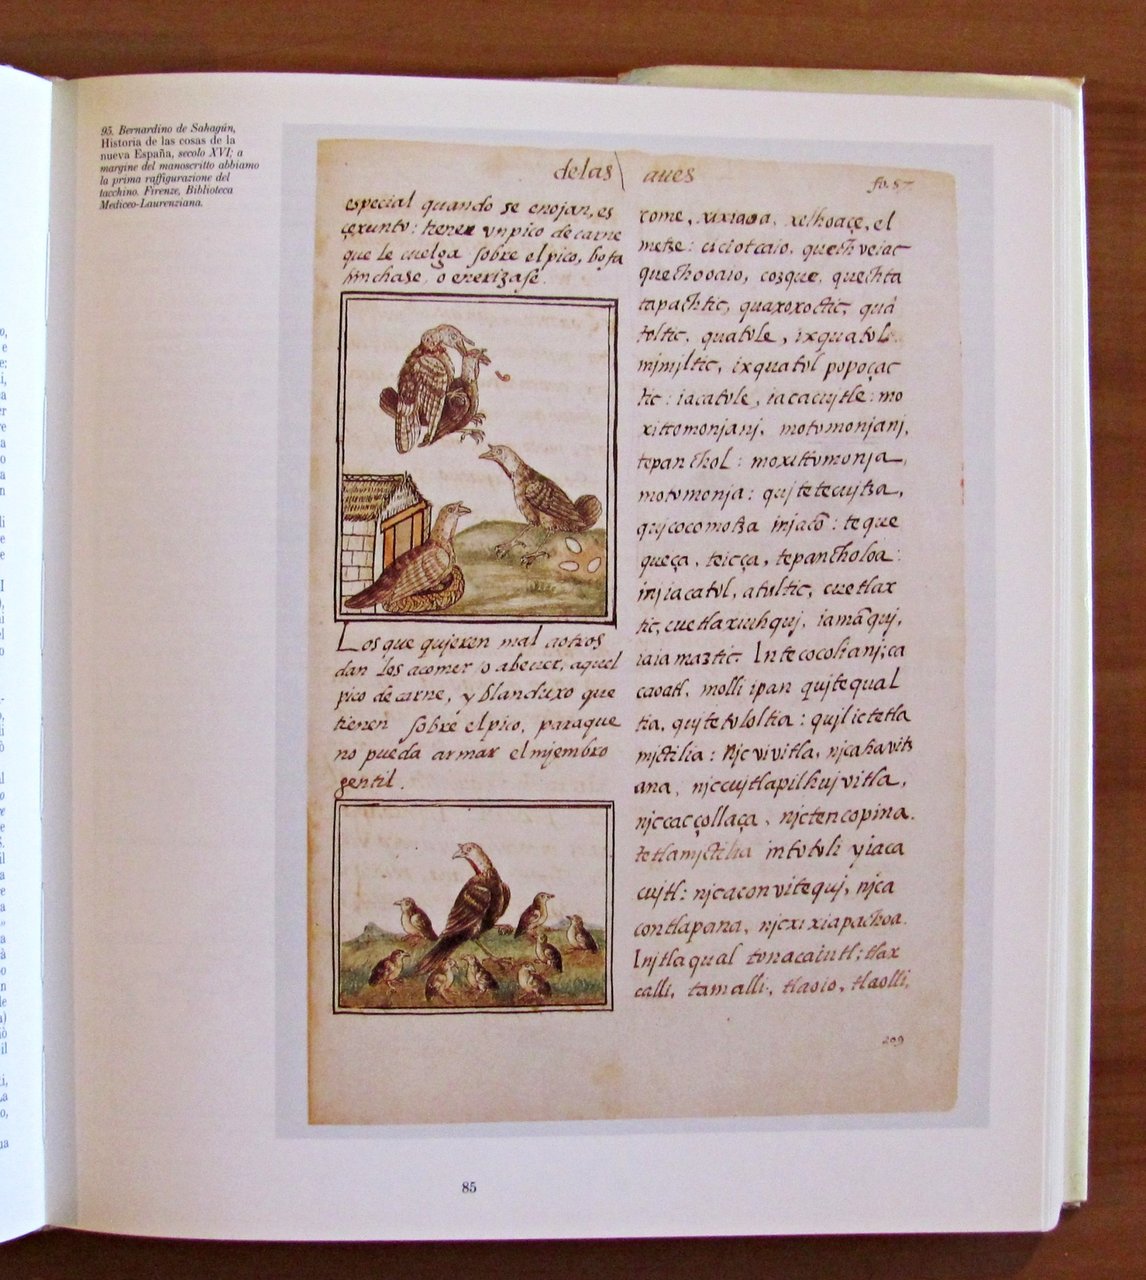 95. Bernardino de Sahagún,
Historia de las cosas de la
nueva España, secolo XVI; a
margine del manoscritto abbiamo
la prima raffigurazione del
tacchino. Firenze, Biblioteca
Mediceo-Laurenziana.
delas aues
fo. 57
especial quando se enojan, es
çexunto: tienen vn pico de carne
que le cuelga sobre el pico, bofa
hinchase, o enerizase.
Los que quieren mal aotros
dan les acomer o abeuer, aquel
pico de carne, y blanduxo que
tienen sobre el pico, paraque
no pueda armar el mjembro
gentil.
tome, xixiaoa, xelhoaçe, el
metze: ciciotcaio,
quechooaio, cozque, quechta
tapachtic, quaxoxoctic, qua
toltic, quatule, ixquatol
mimjltic, ixquatol popoçac
tic: iacatule, iacacujtle: mo
xittomonjanj, motomonjanj,
tepanchol: moxittomonja,
motomonja: qujtetecujtza,
qujcocomotza injacô: teque
queça, teicça, tepancholoa:
injiacatol, atultic, cuetlax
tic, cuetlaxiuhquj, iamãquj,
iaiamaztic. Intecocolianj; ca
caoatl, molli ipan qujtequal
tia, qujtetololtia: qujlictetla
mjctilia: Njcvivitla, njcahavitz
ana, njccujtlapilhujvitla,
njccacçollaça, njctencopina.
tetlamjctilia intotoli yiaca
cujtl: njcaconvitequj, njca
contlapana, njcxixiapachoa.
Injtlaqual tonacaiutl; tlax
calli, tamalli, tlaoio, tlaolli,
209
85